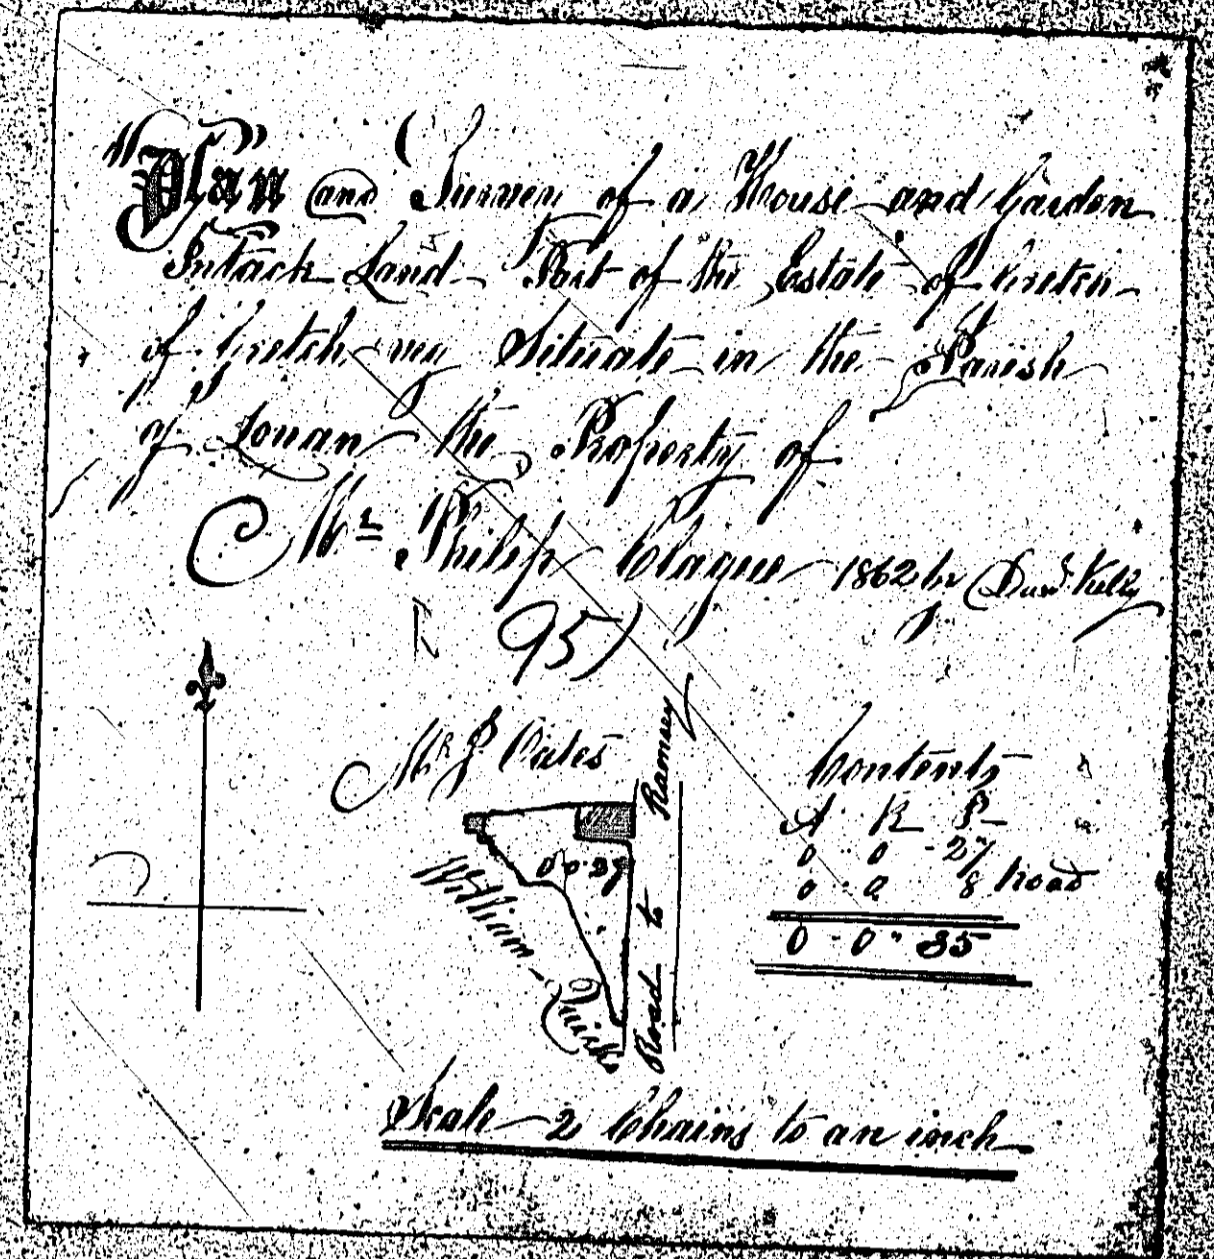 Plan and Survey of a House and Garden
Intack Land Part of the Estate of Gretch
of Gretch-vey Situate in the Parish
of Lonan the Property of
Mr Philip Clague 1862 by Kelly
95
Mr J
William Quirks
0 0 27
Road to Ramsey
Contents
A R P
0 0 27
0 0 8 Road
0 0 35
Scale 2 Chains to an inch